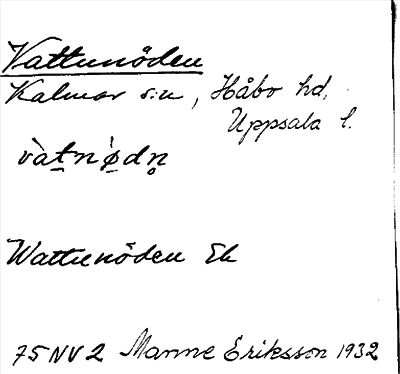 Vattunöden
Kalmar s:n, Håbo hd,
Uppsala l.
và̀t̲nø̲̀dn̥
Wattunöden Ek
75 NV 2 Manne Eriksson 1932